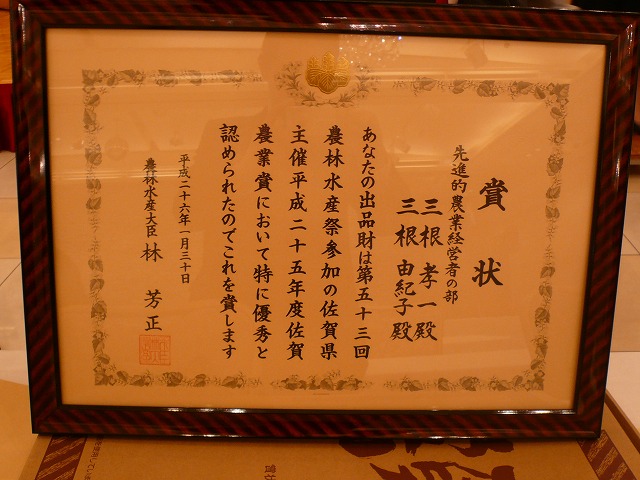 賞状
先進的農業経営者の部
三根孝一殿
三根由紀子殿
あなたの出品財は第五十三回
農林水産祭参加の佐賀県
主催平成二十五年度佐賀
農業賞において特に優秀と
認められたのでこれを賞します
平成二十六年一月三十日
農林水産大臣 林芳正